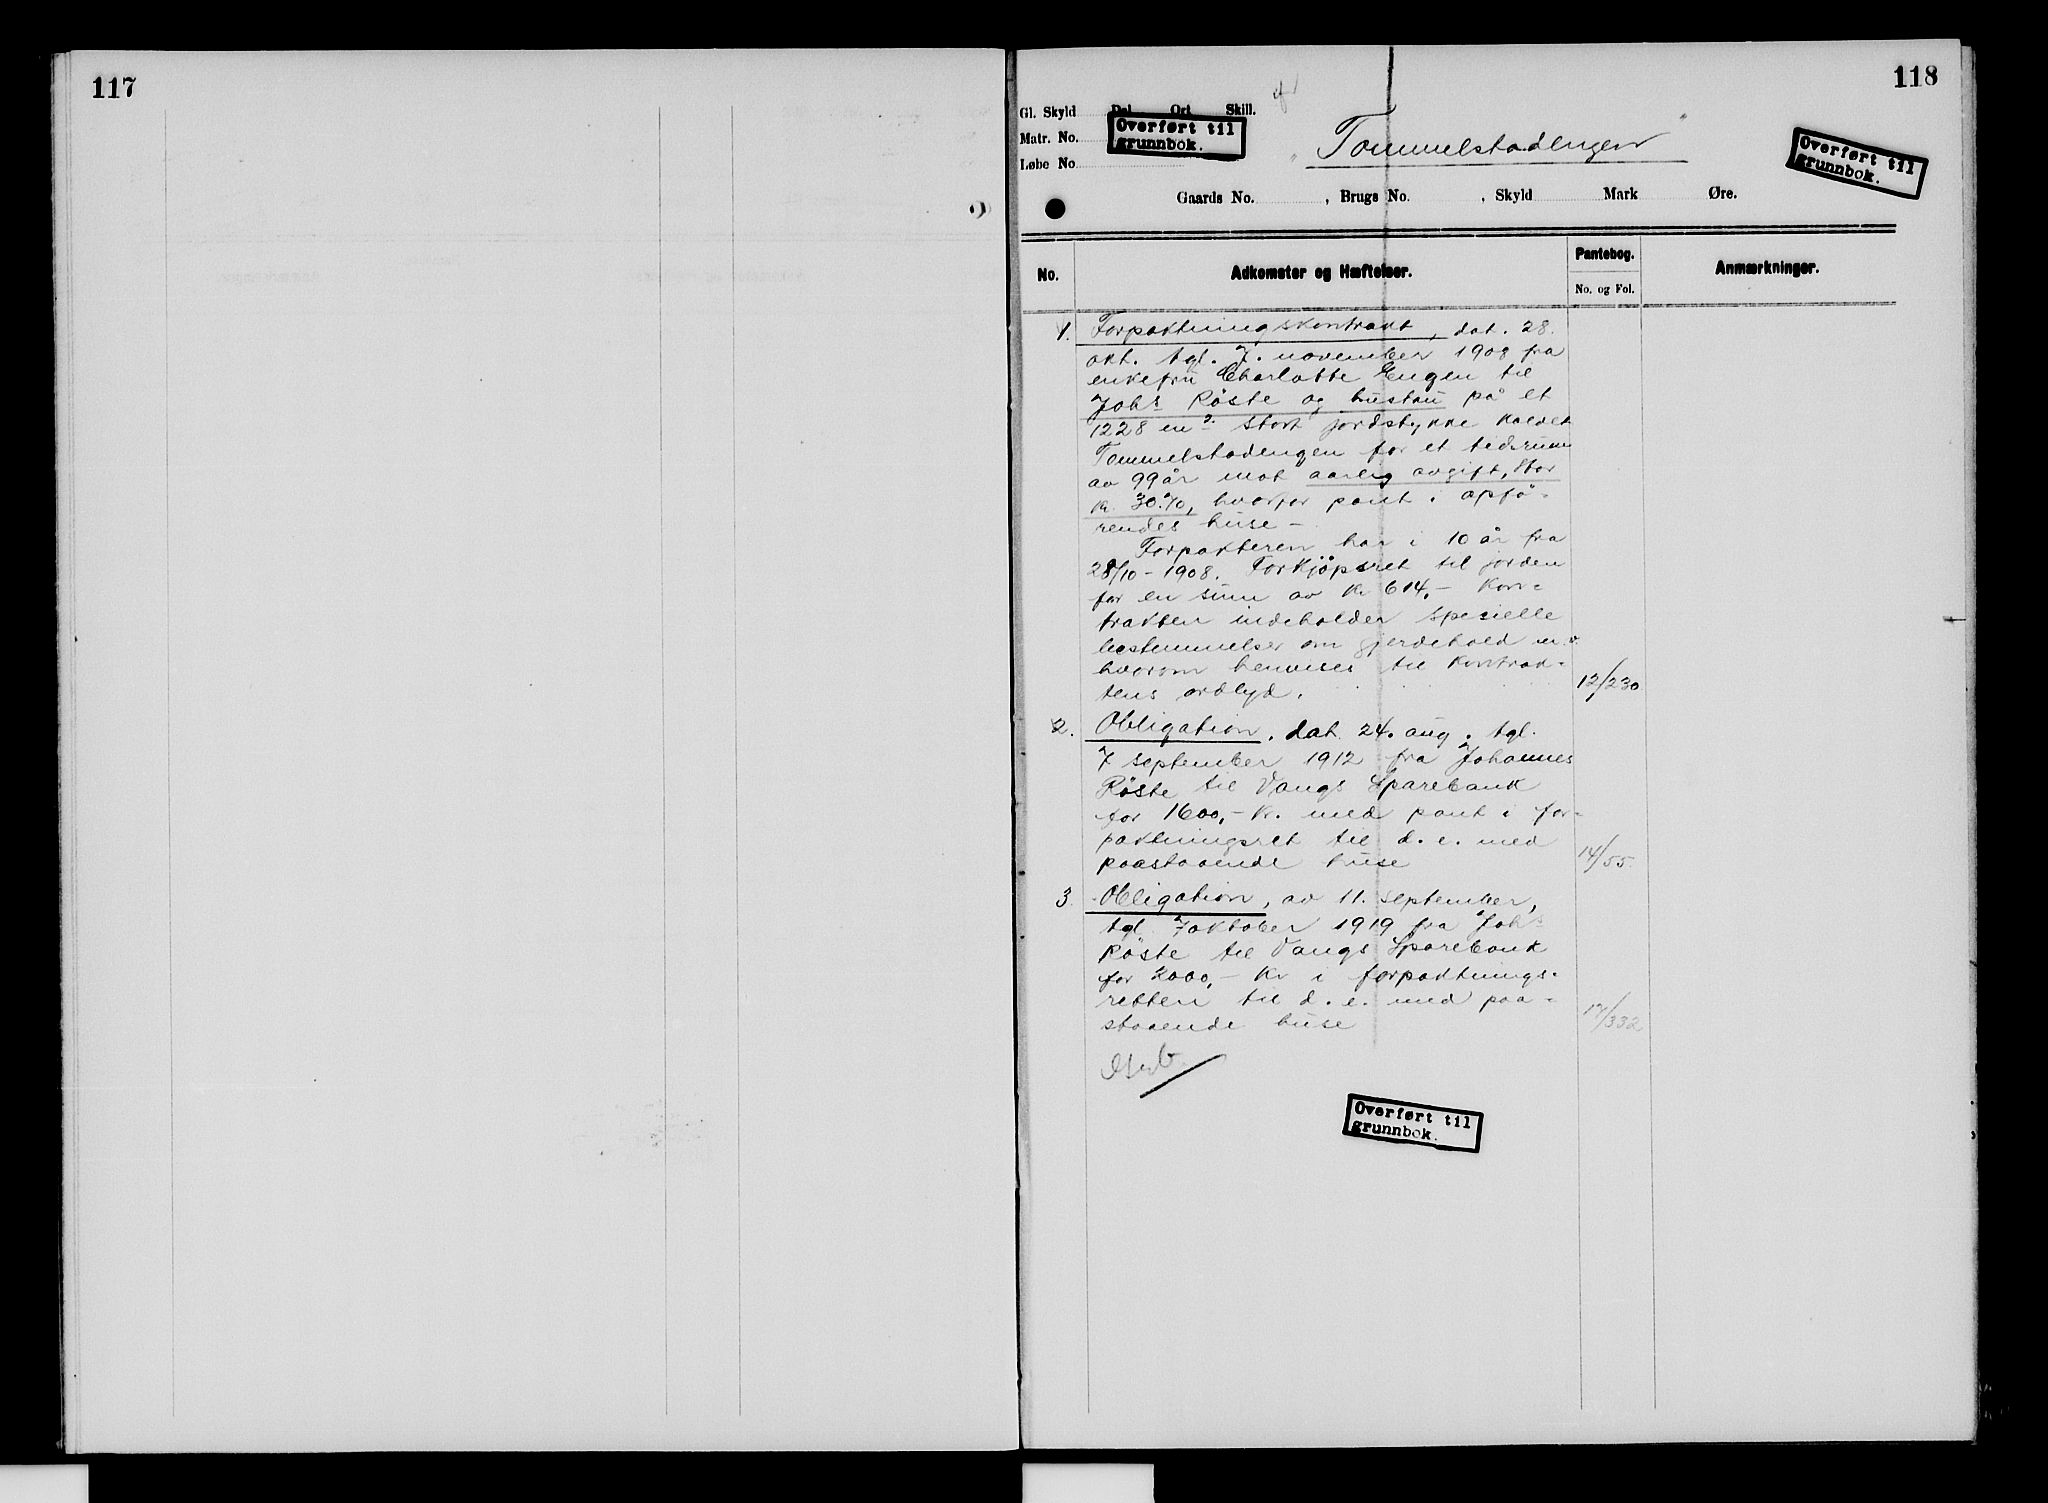 117
118
Gl. Skyld Dal. Ort Skill.
Matr. No.
Løbe No
Overført til
grunnbok.
"Tommelstadengen"
Overført til
grunnbok.
Gaards No. , Brugs No. , Skyld Mark Øre.
No. Adkomster og Hæftelser. Pantebog. Anmærkninger.
No. og Fol.
1. Forpaktningskontrakt, dat. 28.
okt. tgl. 7. november 1908 fra
enkefru Charlotte Engen til
Johs Røste og hustru på et
1228 m² stort jordstykke kaldet
Tommelstadengen for et tidsrum
av 99 år mot aarlig avgift, stor
kr. 30.%, hvorfor pant i opfø-
rendes huse -
Forpakteren har i 10 år fra
28/10-1908. Forkjøpsret til jorden
for en sum av kr 614,- Kon-
trakten indeholder specielle
bestemmelser om gjerdehold m.v.
hvorom henvises til kontrak-
tens ordlyd. 12/230
2. Obligation, dat. 24. aug. tgl.
7 september 1912 fra Johannes
Røste til Vangs Sparebank
for 1600,- kr. med pant i for-
paktningsret til d. e. med
paastaaende huse 14/55.
3. Obligation, av 11. september,
tgl. 7 oktober 1919 fra Johs
Røste til Vangs Sparebank
for 2000,- kr i forpaktnings-
retten til d. e. med paa-
staaende huse 17/332
Overført til
grunnbok.